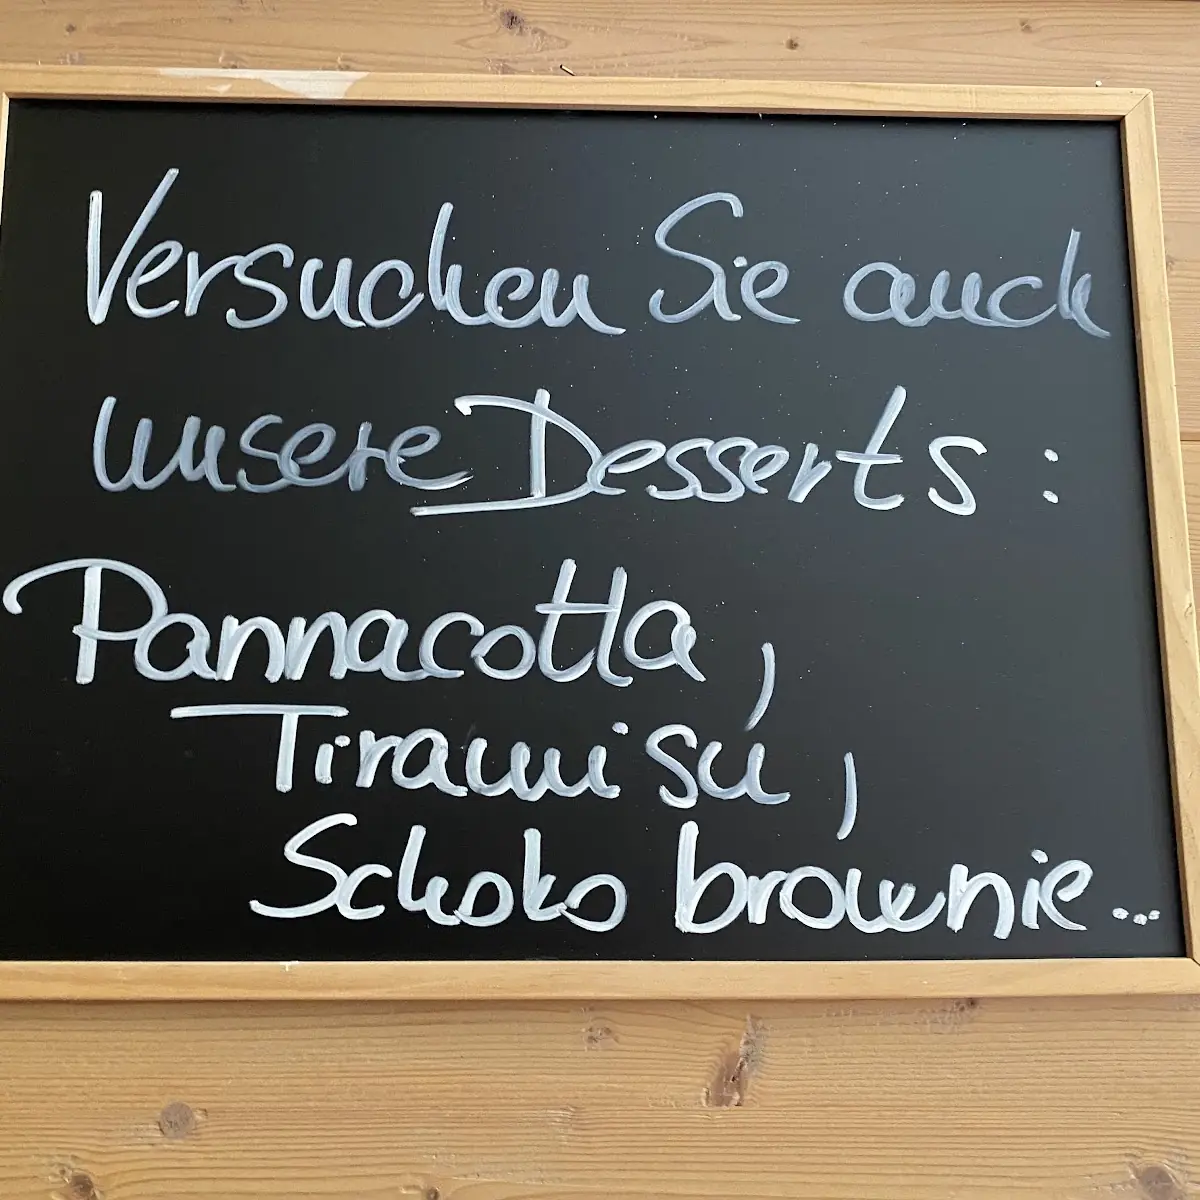 Versuchen Sie auch
unsere Desserts:
Pannacotta,
Tiramisu,
Schoko brownie...